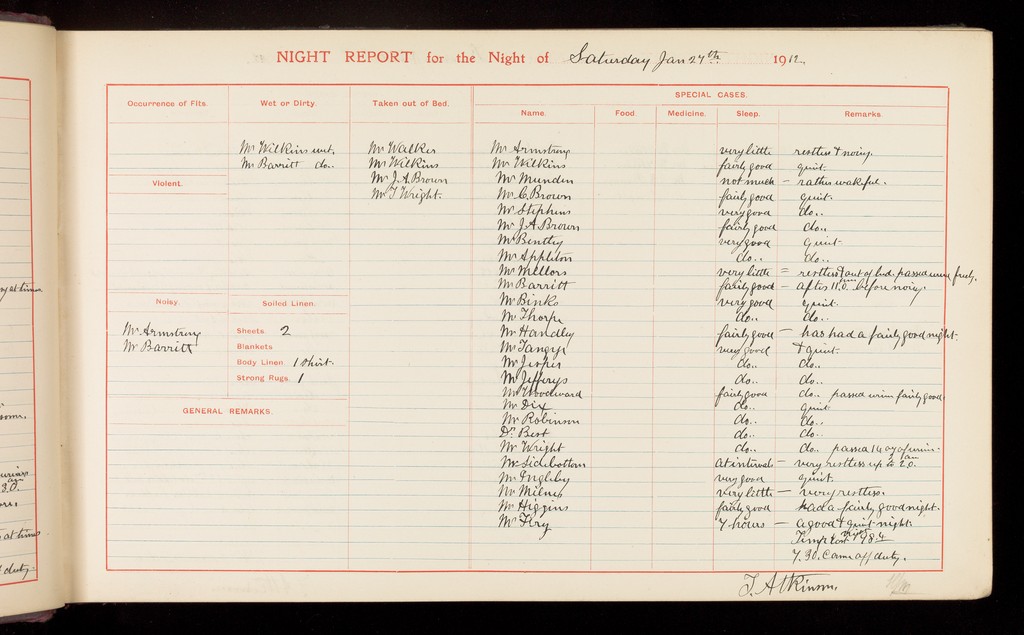 NIGHT REPORT for the Night of Saturday Jan 27th 1912
SPECIAL CASES.
Occurrence of Fits.
Wet or Dirty.
Taken out of Bed.
Name.
Food.
Medicine.
Sleep.
Remarks.
Mr Wilkins wet.
Mr Barritt do..
Violent.
Noisy.
Mr Armstrong
Mr Barritt
Soiled Linen.
Sheets 2
Blankets
Body Linen 1 shirt.
Strong Rugs 1
GENERAL REMARKS.
Mr Walker
Mr Wilkins
Mr J.A. Brown
Mr T Wright.
Mr Armstrong very little restless & noisy.
Mr Wilkins fairly good quiet.
Mr Munden not much - rather wakeful.
Mr C. Brown fairly good quiet.
Mr Stephens very good do..
Mr J.A. Brown fairly good do..
Mr Bentley very good quiet.
Mr Appleton do.. do..
Mr Mellors very little = restless & out of bed. passed urine freely.
Mr Barritt fairly good - after 11.0. before noisy.
Mr Binks very good quiet.
Mr Thorpe do.. do..
Mr Handley fairly good - has had a fairly good night.
Mr Tangye very good & quiet.
Mr Jesper do.. do..
Mr Jefferys do.. do..
Mr Woodward fairly good do.. passed urine fairly good
Mr Dix do.. quiet
Mr Robinson do.. do..
Dr Best do.. do..
Mr Wright do.. do. passed 14 oz of urine.
Mr Sidebottom at intervals - very restless up to 2.0. am
Mr Ingleby very good quiet.
Mr Milnes very little - very restless.
Mr Higgins fairly good had a fairly good night.
Mr Fry 7 hours - a good & quiet night.
Temp 98.4
7.30. Came off duty.
T. Atkinson.